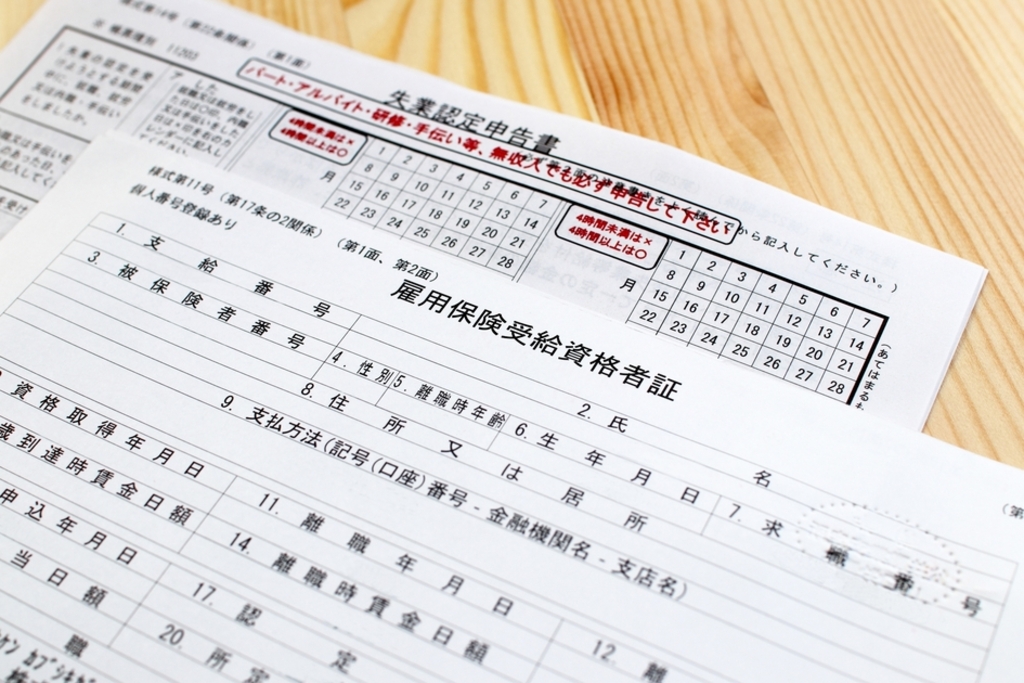 様式第14号（第22条関係）（第1面）
※ 帳票種別 11203
失業認定申告書
パート・アルバイト・研修・手伝い等、無収入でも必ず申告して下さい
から記入してください。）
1 失業の認定を受
けようとする期間
中に、就職、就労
又は内職・手伝い
をしましたか。
ア した
4時間未満は×
4時間以上は○
月
1 2 3 4 5 6 7
8 9 10 11 12 13 14
15 16 17 18 19 20 21
22 23 24 25 26 27 28
4時間未満は×
4時間以上は○
月
1 2 3 4 5 6 7
8 9 10 11 12 13 14
15 16 17 18 19 20 21
22 23 24 25 26 27 28
（あてはまるも
様式第11号（第17条の2関係）（第1面、第2面）
個人番号登録あり
雇用保険受給資格者証
（第
1. 支給番号
2. 氏名
3. 被保険者番号
4. 性別
5. 離職時年齢
6. 生年月日
7. 求職番号
8. 住所又は居所
9. 支払方法（記号（口座）番号 - 金融機関名 - 支店名）
資格取得年月日
11. 離職年月日
12. 離
歳到達時賃金日額
14. 離職時賃金日額
申込年月日
17. 認定
当日額
20. 所定
職